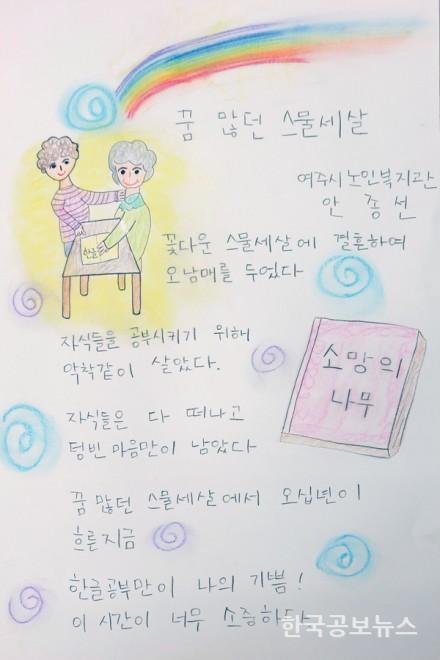 꿈 많던 스물세살
여주시노인복지관
안 종 선
꽃다운 스물세살에 결혼하여
오남매를 두었다
한글
자식들을 공부시키기 위해
악착같이 살았다.
소망의
나무
자식들은 다 떠나고
텅빈 마음만이 남았다
꿈 많던 스물세살에서 오십년이
흐른지금
한글공부만이 나의 기쁨!
이 시간이 너무 소중하다
한국공보뉴스